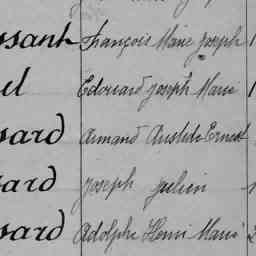 ssant François Marie Joseph
el Edouard Joseph Marie
sard Armand Aristide Ernest
sard Joseph Julien
sard Adolphe Henri Marie